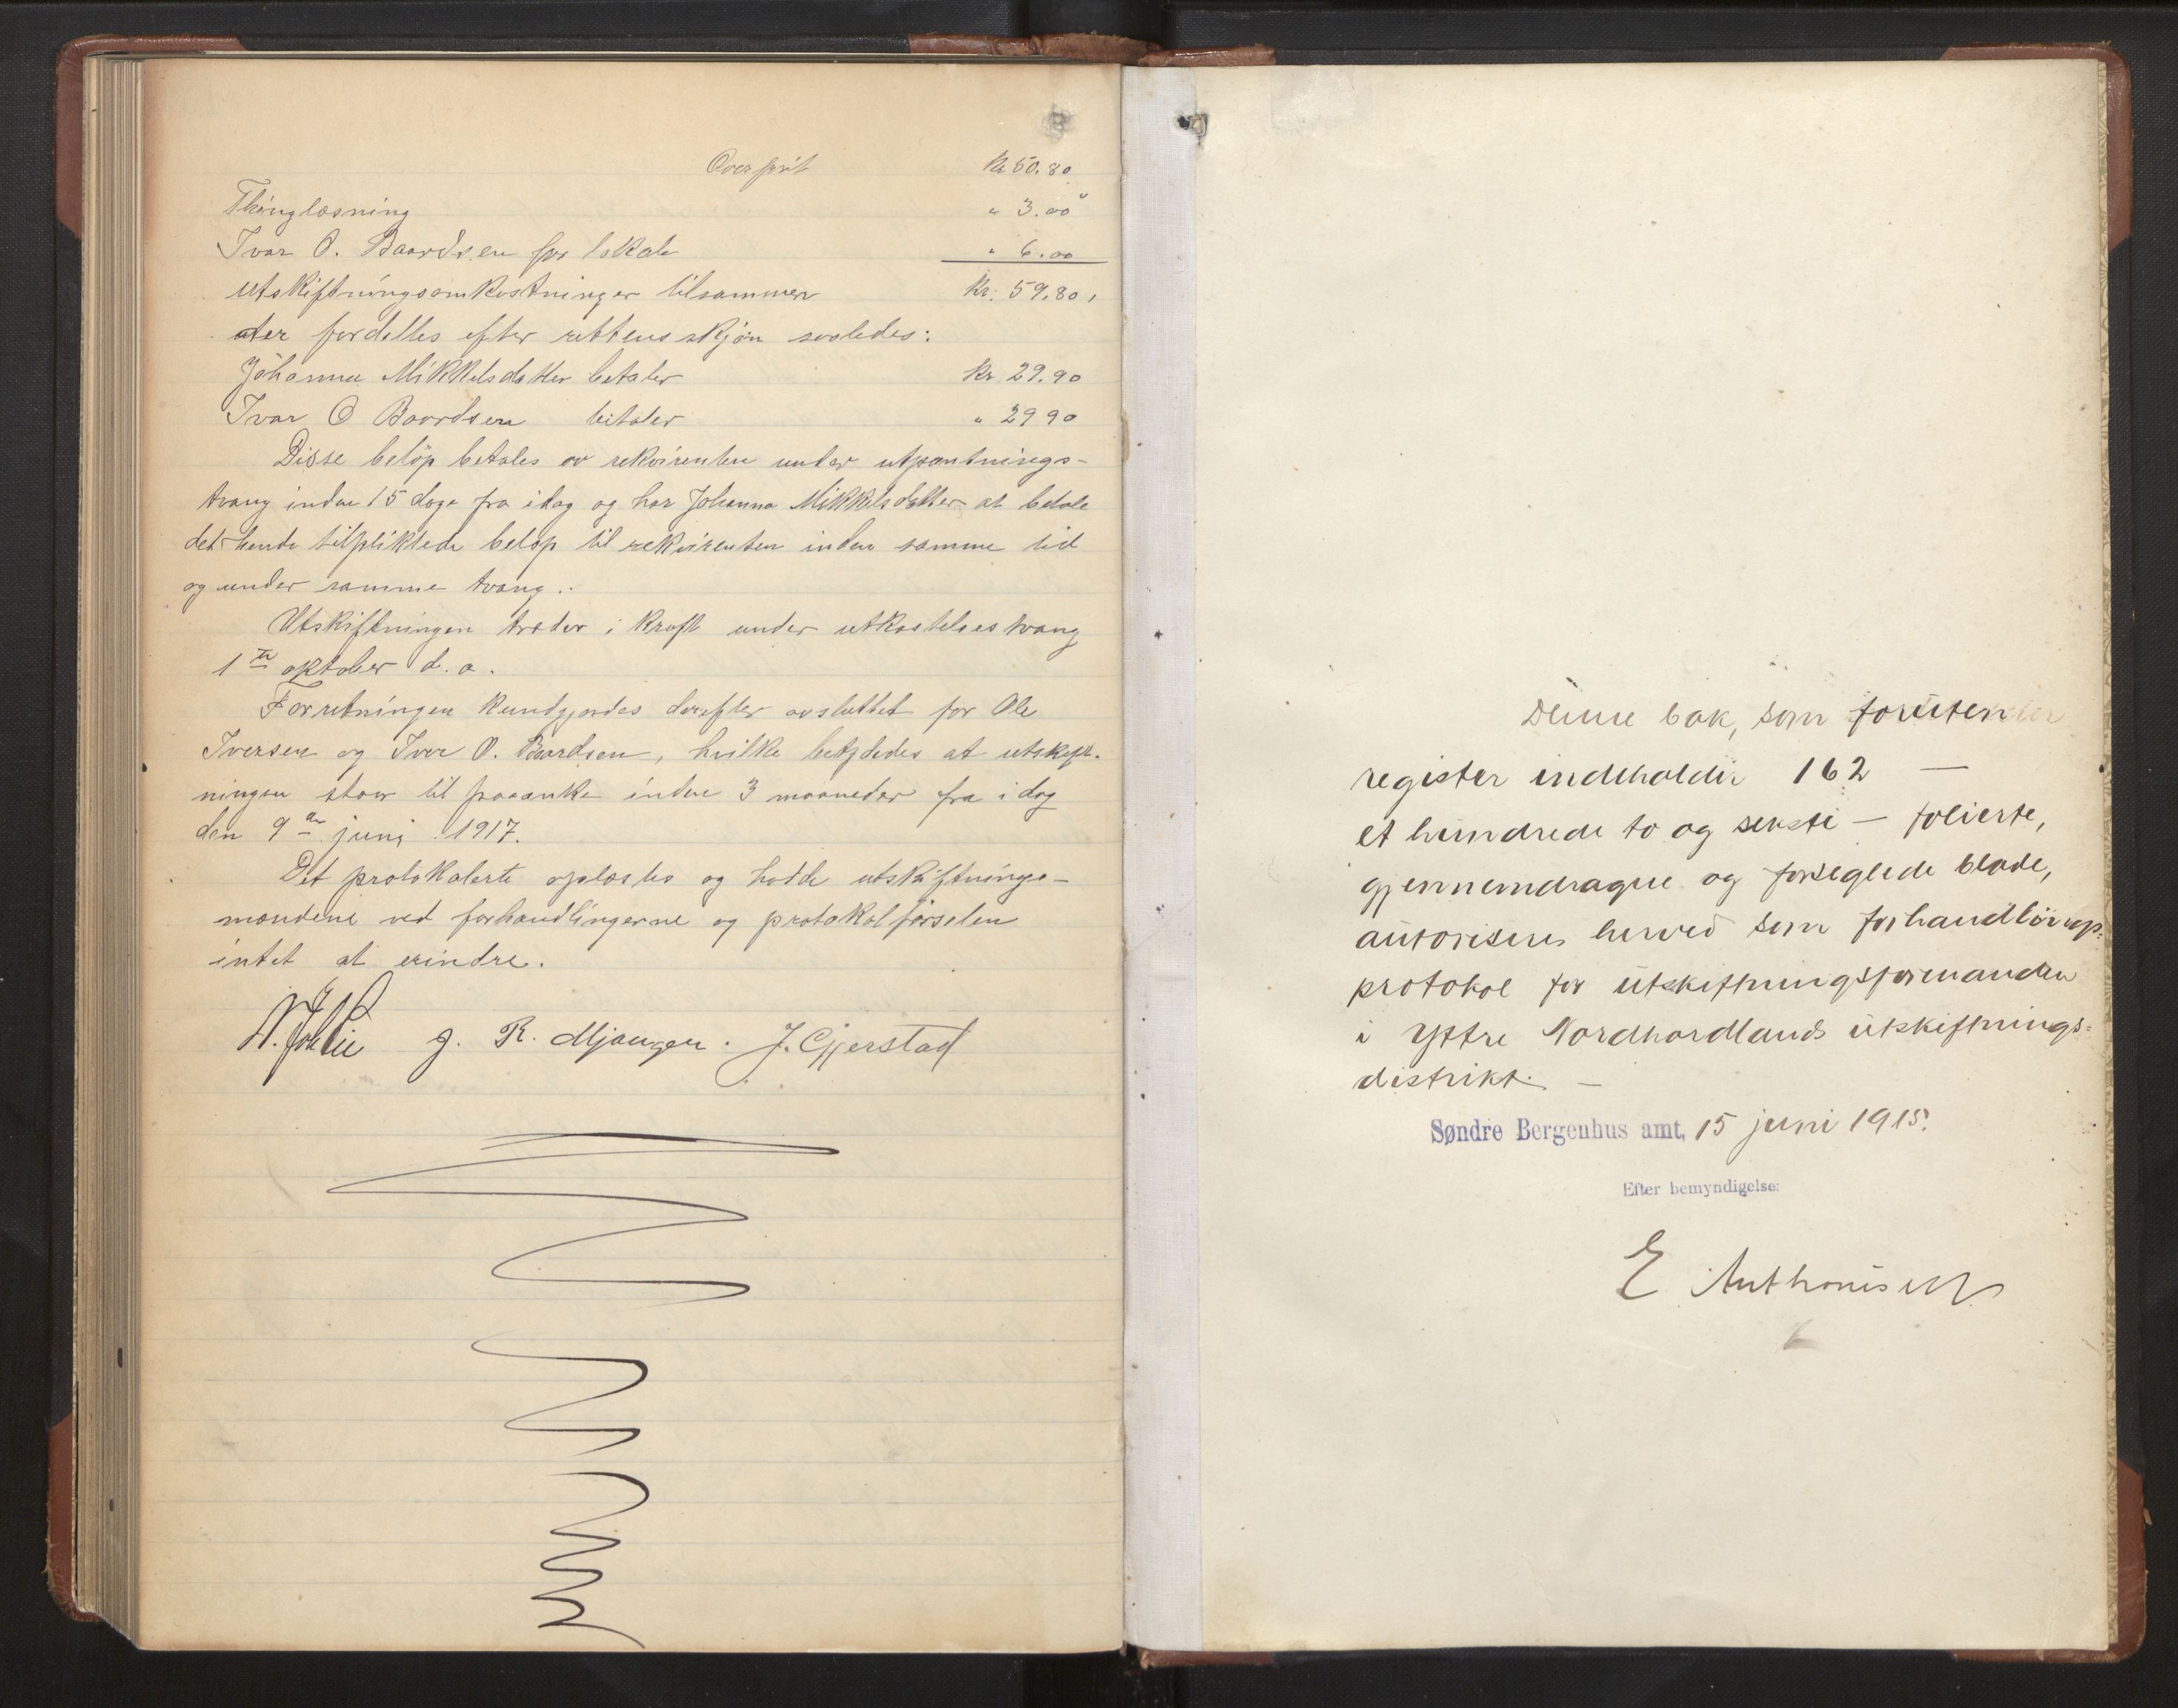 Overført Kr 50.80
Thinglæsning " 3.00
Ivar O. Baardsen for lokale " 6.00
Utskiftningsomkostninger tilsammen Kr. 59.80,
der fordelles efter rettens skjøn saaledes:
Johanna Mikkelsdatter betaler Kr. 29.90
Ivar O Baardsen betaler " 29 90
Disse beløp betales av rekvirenten under utpantnings-
tvang inden 15 dage fra idag og har Johanna Mikkelsdatter at betale
det hende tilpliktede beløp til rekvirenten inden samme tid
og under samme tvang.
Utskiftningen træder i kraft under utkastelsestvang
1ste oktober d.a.
Forretningen kundgjordes derefter avsluttet for Ole
Iversen og Iver O. Baardsen, hvilke betydedes at utskift-
ningen staar til paaanke inden 3 maaneder fra idag
den 9de juni 1917.
Det protokolerte oplæstes og hadde utskiftnings-
mændene ved forhandlingerne og protokolførselen
intet at erindre.
J. R. Mjanger. J. Gjerstad
Denne bok, som foruten
register indeholder 162 —
et hundrede to og seksti — folierte,
gjennemdragne og forseglede blade,
autoriseres herved som forhandlings-
protokol for utskiftningsformanden
i Yttre Nordhordlands utskiftnings-
distrikt. —
Søndre Bergenhus amt, 15 juni 1915.
Efter bemyndigelse:
E Anthonisen